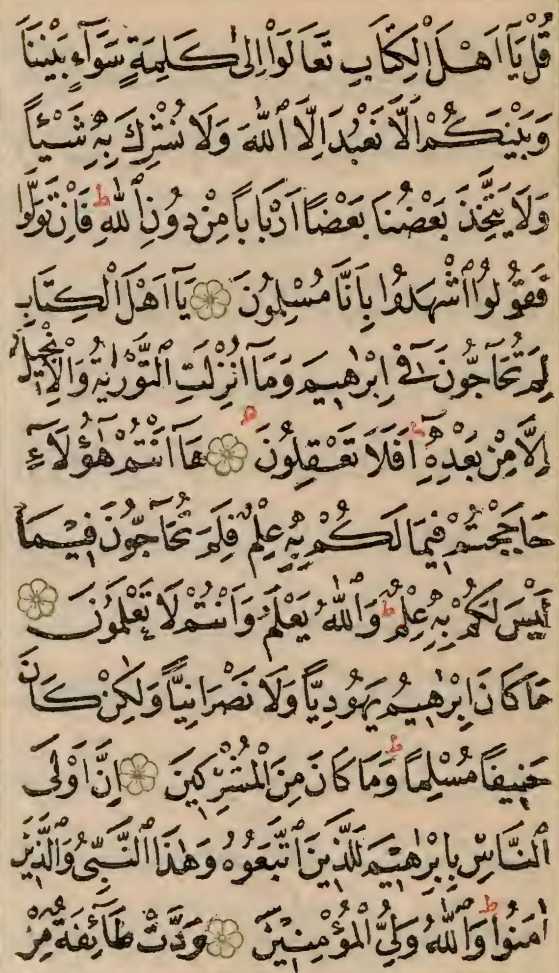 قُلْ يَٓا اَهْلَ الْكِتَابِ تَعَالَوْا اِلٰى كَلِمَةٍ سَوَٓاءٍ بَيْنَنَا
وَبَيْنَكُمْ اَلَّا نَعْبُدَ اِلَّا اللّٰهَ وَلَا نُشْرِكَ بِهِ شَيْئاً
وَلَا يَتَّخِذَ بَعْضُنَا بَعْضاً اَرْبَاباً مِنْ دُونِ اللّٰهِ ط فَاِنْ تَوَلَّوْا
فَقُولُوا اشْهَدُوا بِاَنَّا مُسْلِمُونَ ۝ يَٓا اَهْلَ الْكِتَابِ
لِمَ تُحَٓاجُّونَ فٓى اِبْرٰهٖيمَ وَمَٓا اُنْزِلَتِ التَّوْرٰيةُ وَالْاِنْجٖيلُ
اِلَّا مِنْ بَعْدِهٖٓ ط اَفَلَا تَعْقِلُونَ ط ۝ هَٓا اَنْتُمْ هٰٓؤُلَٓاءِ
حَاجَجْتُمْ فٖيمَا لَكُمْ بِهٖ عِلْمٌ فَلِمَ تُحَٓاجُّونَ فٖيمَا
لَيْسَ لَكُمْ بِهٖ عِلْمٌ ط وَاللّٰهُ يَعْلَمُ وَاَنْتُمْ لَا تَعْلَمُونَ ۝
مَا كَانَ اِبْرٰهٖيمُ يَهُودِيًّا وَلَا نَصْرَانِيًّا وَلٰكِنْ كَانَ
حَنٖيفاً مُسْلِماً ط وَمَا كَانَ مِنَ الْمُشْرِكٖينَ ۝ اِنَّ اَوْلَى
النَّاسِ بِاِبْرٰهٖيمَ لَلَّذٖينَ اتَّبَعُوهُ وَهٰذَا النَّبِىُّ وَالَّذٖينَ
اٰمَنُوا ط وَاللّٰهُ وَلِىُّ الْمُؤْمِنٖينَ ۝ وَدَّتْ طَٓائِفَةٌ مِنْ